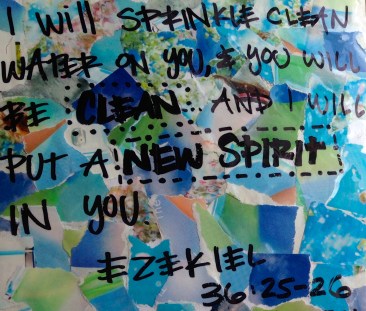 I WILL SPRINKLE CLEAN
WATER ON YOU, & YOU WILL
BE CLEAN. AND I WILL
PUT A NEW SPIRIT
IN YOU
EZEKIEL
36:25-26